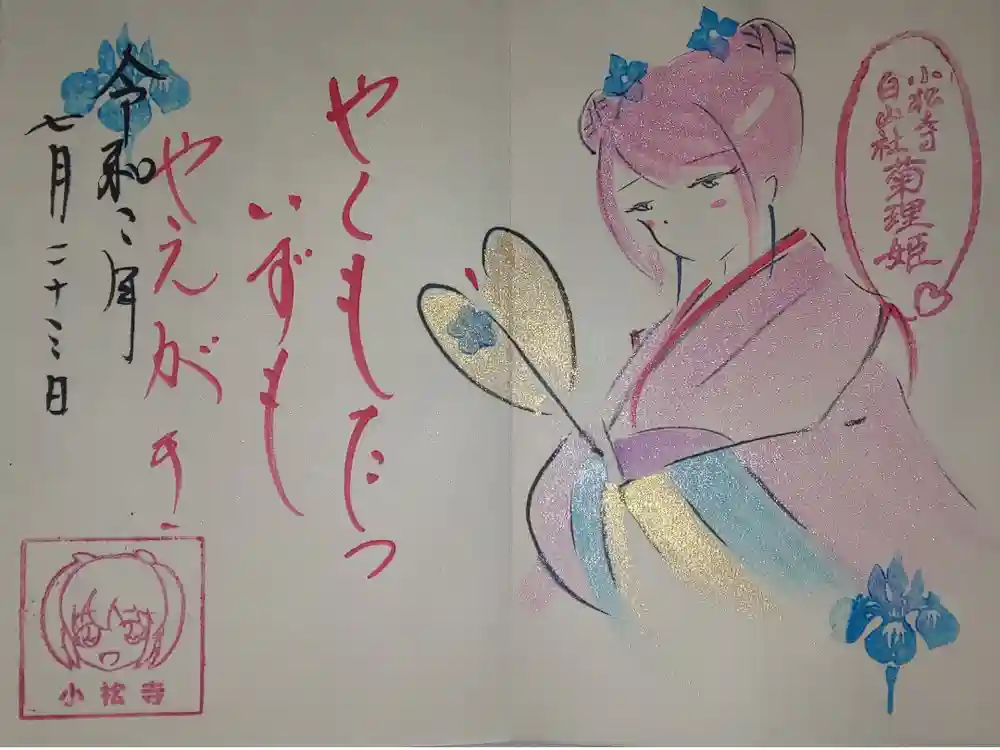 小松寺
白山社 菊理姫
やくもたつ
いずも
やえがき
令和二年
七月二十三日
小松寺